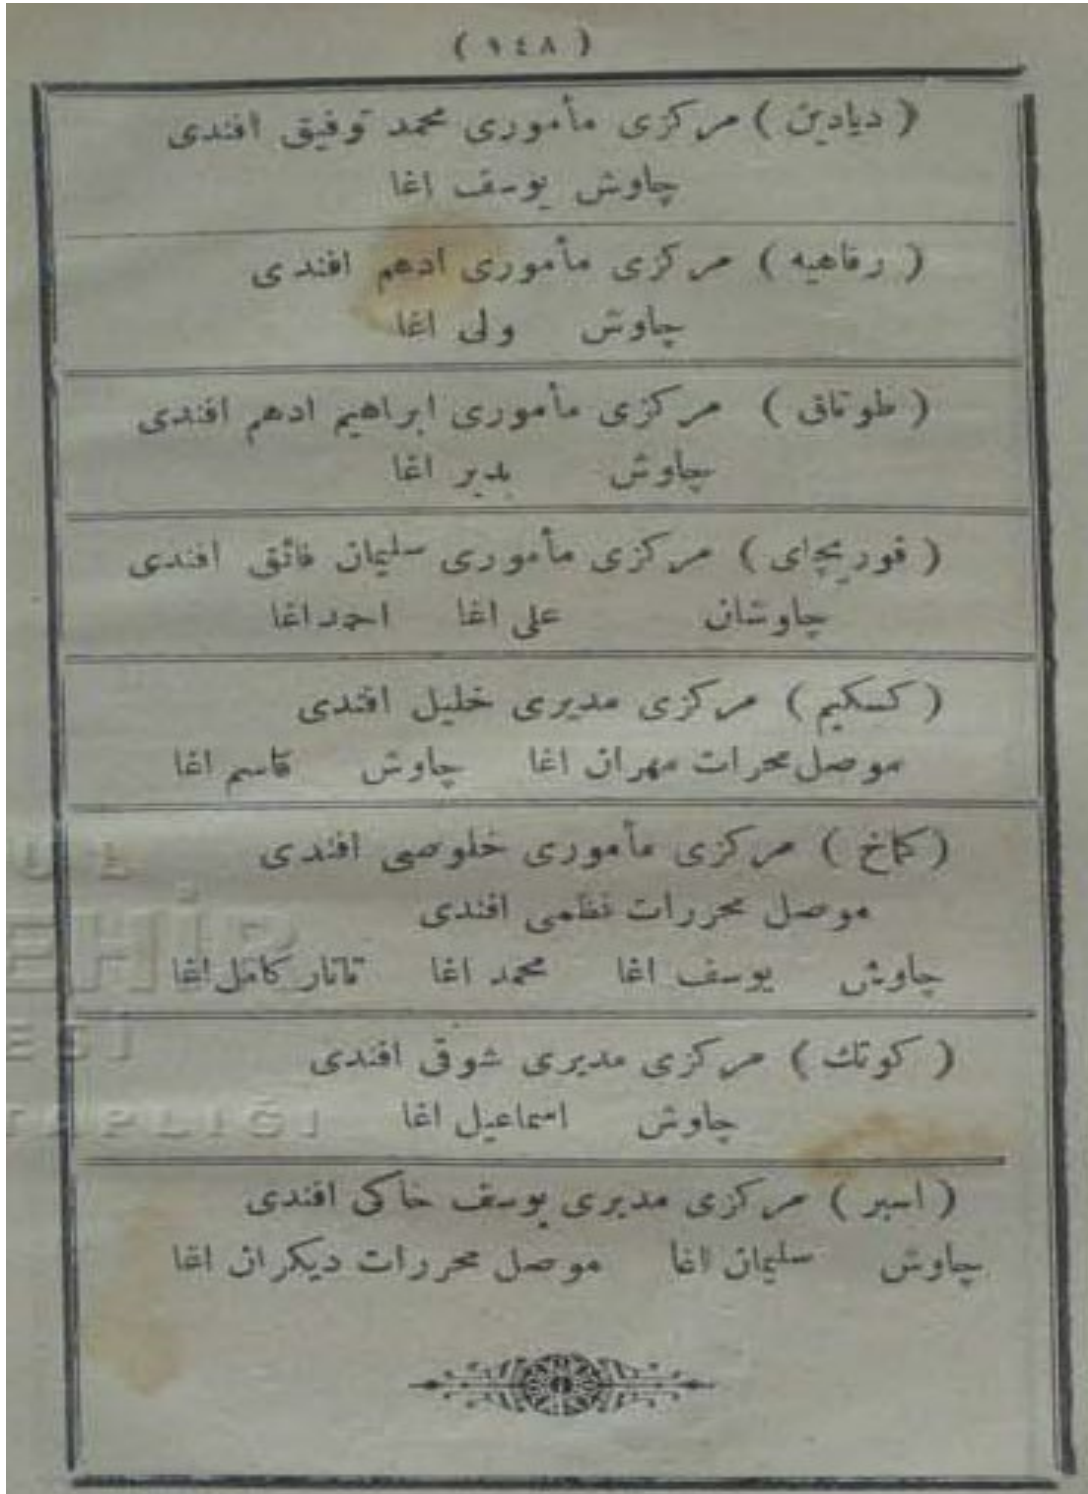 ( ١٤٨ )
( ديادين ) مركزى مأمورى محمد توفيق افندى
چاوش يوسف اغا
( رفاهيه ) مركزى مأمورى ادهم افندى
چاوش ولى اغا
( طوتاق ) مركزى مأمورى ابراهيم ادهم افندى
چاوش بدير اغا
( قوريچاى ) مركزى مأمورى سليمان فائق افندى
چاوشان على اغا احمد اغا
( كسكيم ) مركزى مديرى خليل افندى
موصل محرات مهران اغا چاوش قاسم اغا
( كماخ ) مركزى مأمورى خلوصى افندى
موصل محررات نظمى افندى
چاوش يوسف اغا محمد اغا تاتار كامل اغا
( كوتك ) مركزى مديرى شوقى افندى
چاوش اسماعيل اغا
( اسپر ) مركزى مديرى يوسف خاكى افندى
چاوش سليمان اغا موصل محررات ديكران اغا